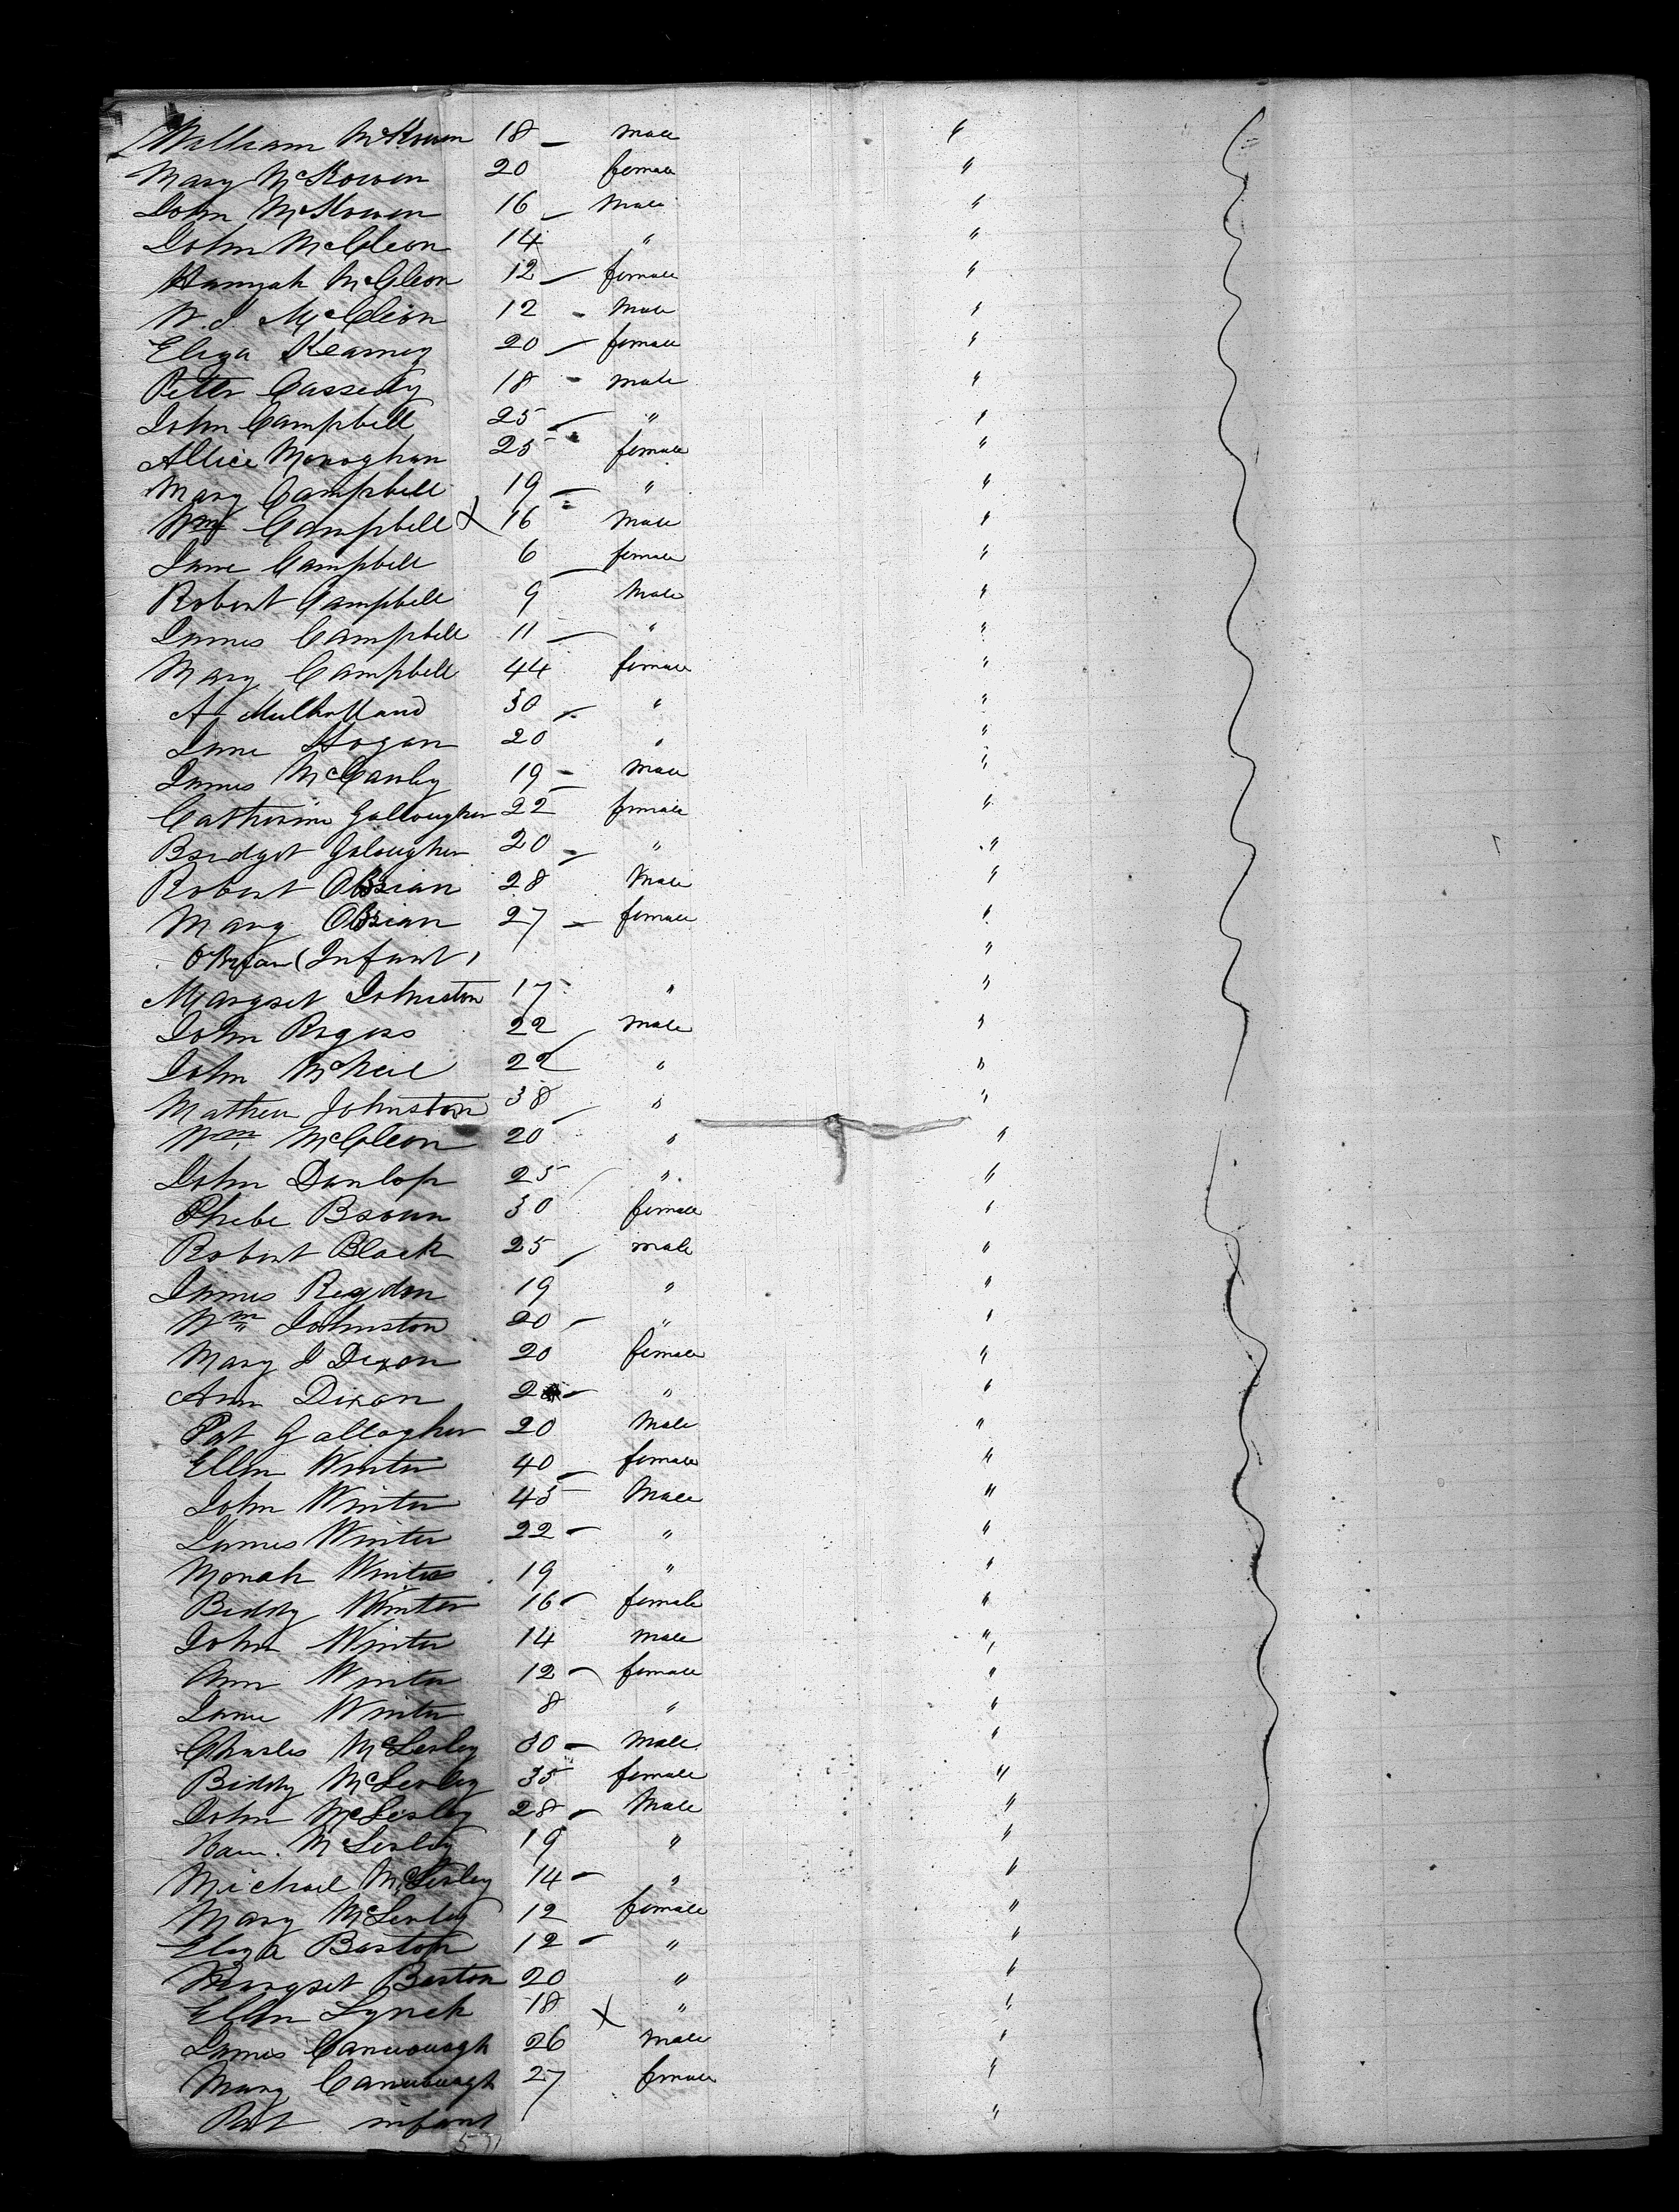 William McKowen 18 — Male "
Mary McKowen 20 female "
John McKowen 16 — Male "
John McCleon 14 " "
Hannah McCleon 12 — female "
W. J. McCleon 12 - Male "
Eliza Kearney 20 — female "
Peter Cassedy 18 - male "
John Campbell 25 — " "
Allice Monoghan 25 - female "
Mary Campbell 19 — " "
Wm Campbell X 16 - Male "
Jane Campbell 6 — female "
Robert Campbell 9 Male "
James Campbell 11 — " "
Mary Campbell 44 female "
A Mulholland 30 — " "
Jane Hogan 20 " "
James McCawly 19 — Male "
Catherine Gallougher 22 female "
Bridget Galougher 20 — " "
Robert OBrian 28 Male "
Mary OBrian 27 — female "
OBrian (Infant) "
Margret Johnston 17 " "
John Rogers 22 — male "
John McNeil 22 " "
Mathew Johnston 38 — " "
Wm McCleon 20 " "
John Dunlop 25 — " "
Phebe Brown 30 female "
Robert Black 25 — male "
James Regdon 19 " "
Wm Johnston 20 — " "
Mary J Dixon 20 female "
Ann Dixon — " "
Pat Gallagher 20 Male "
Ellen Winter 40 — female "
John Winter 45 Male "
James Winter 22 — " "
Monah Winter 19 " "
Biddy Winter 16 — female "
John Winter 14 male "
Ann Winter 12 — female "
Jane Winter 8 " "
Charles McSerley 30 — Male "
Biddy McSerley 35 female "
John McSerley 28 — Male "
McSerley 19 " "
Michael McSerley 14 — " "
Mary McSerley 12 female "
Eliza Barton 12 — " "
Margret Barton 20 " "
Ellen Lynch 18 X " "
James Canavaugh 26 Male "
Mary Canavaugh 27 female "
Pat infant "